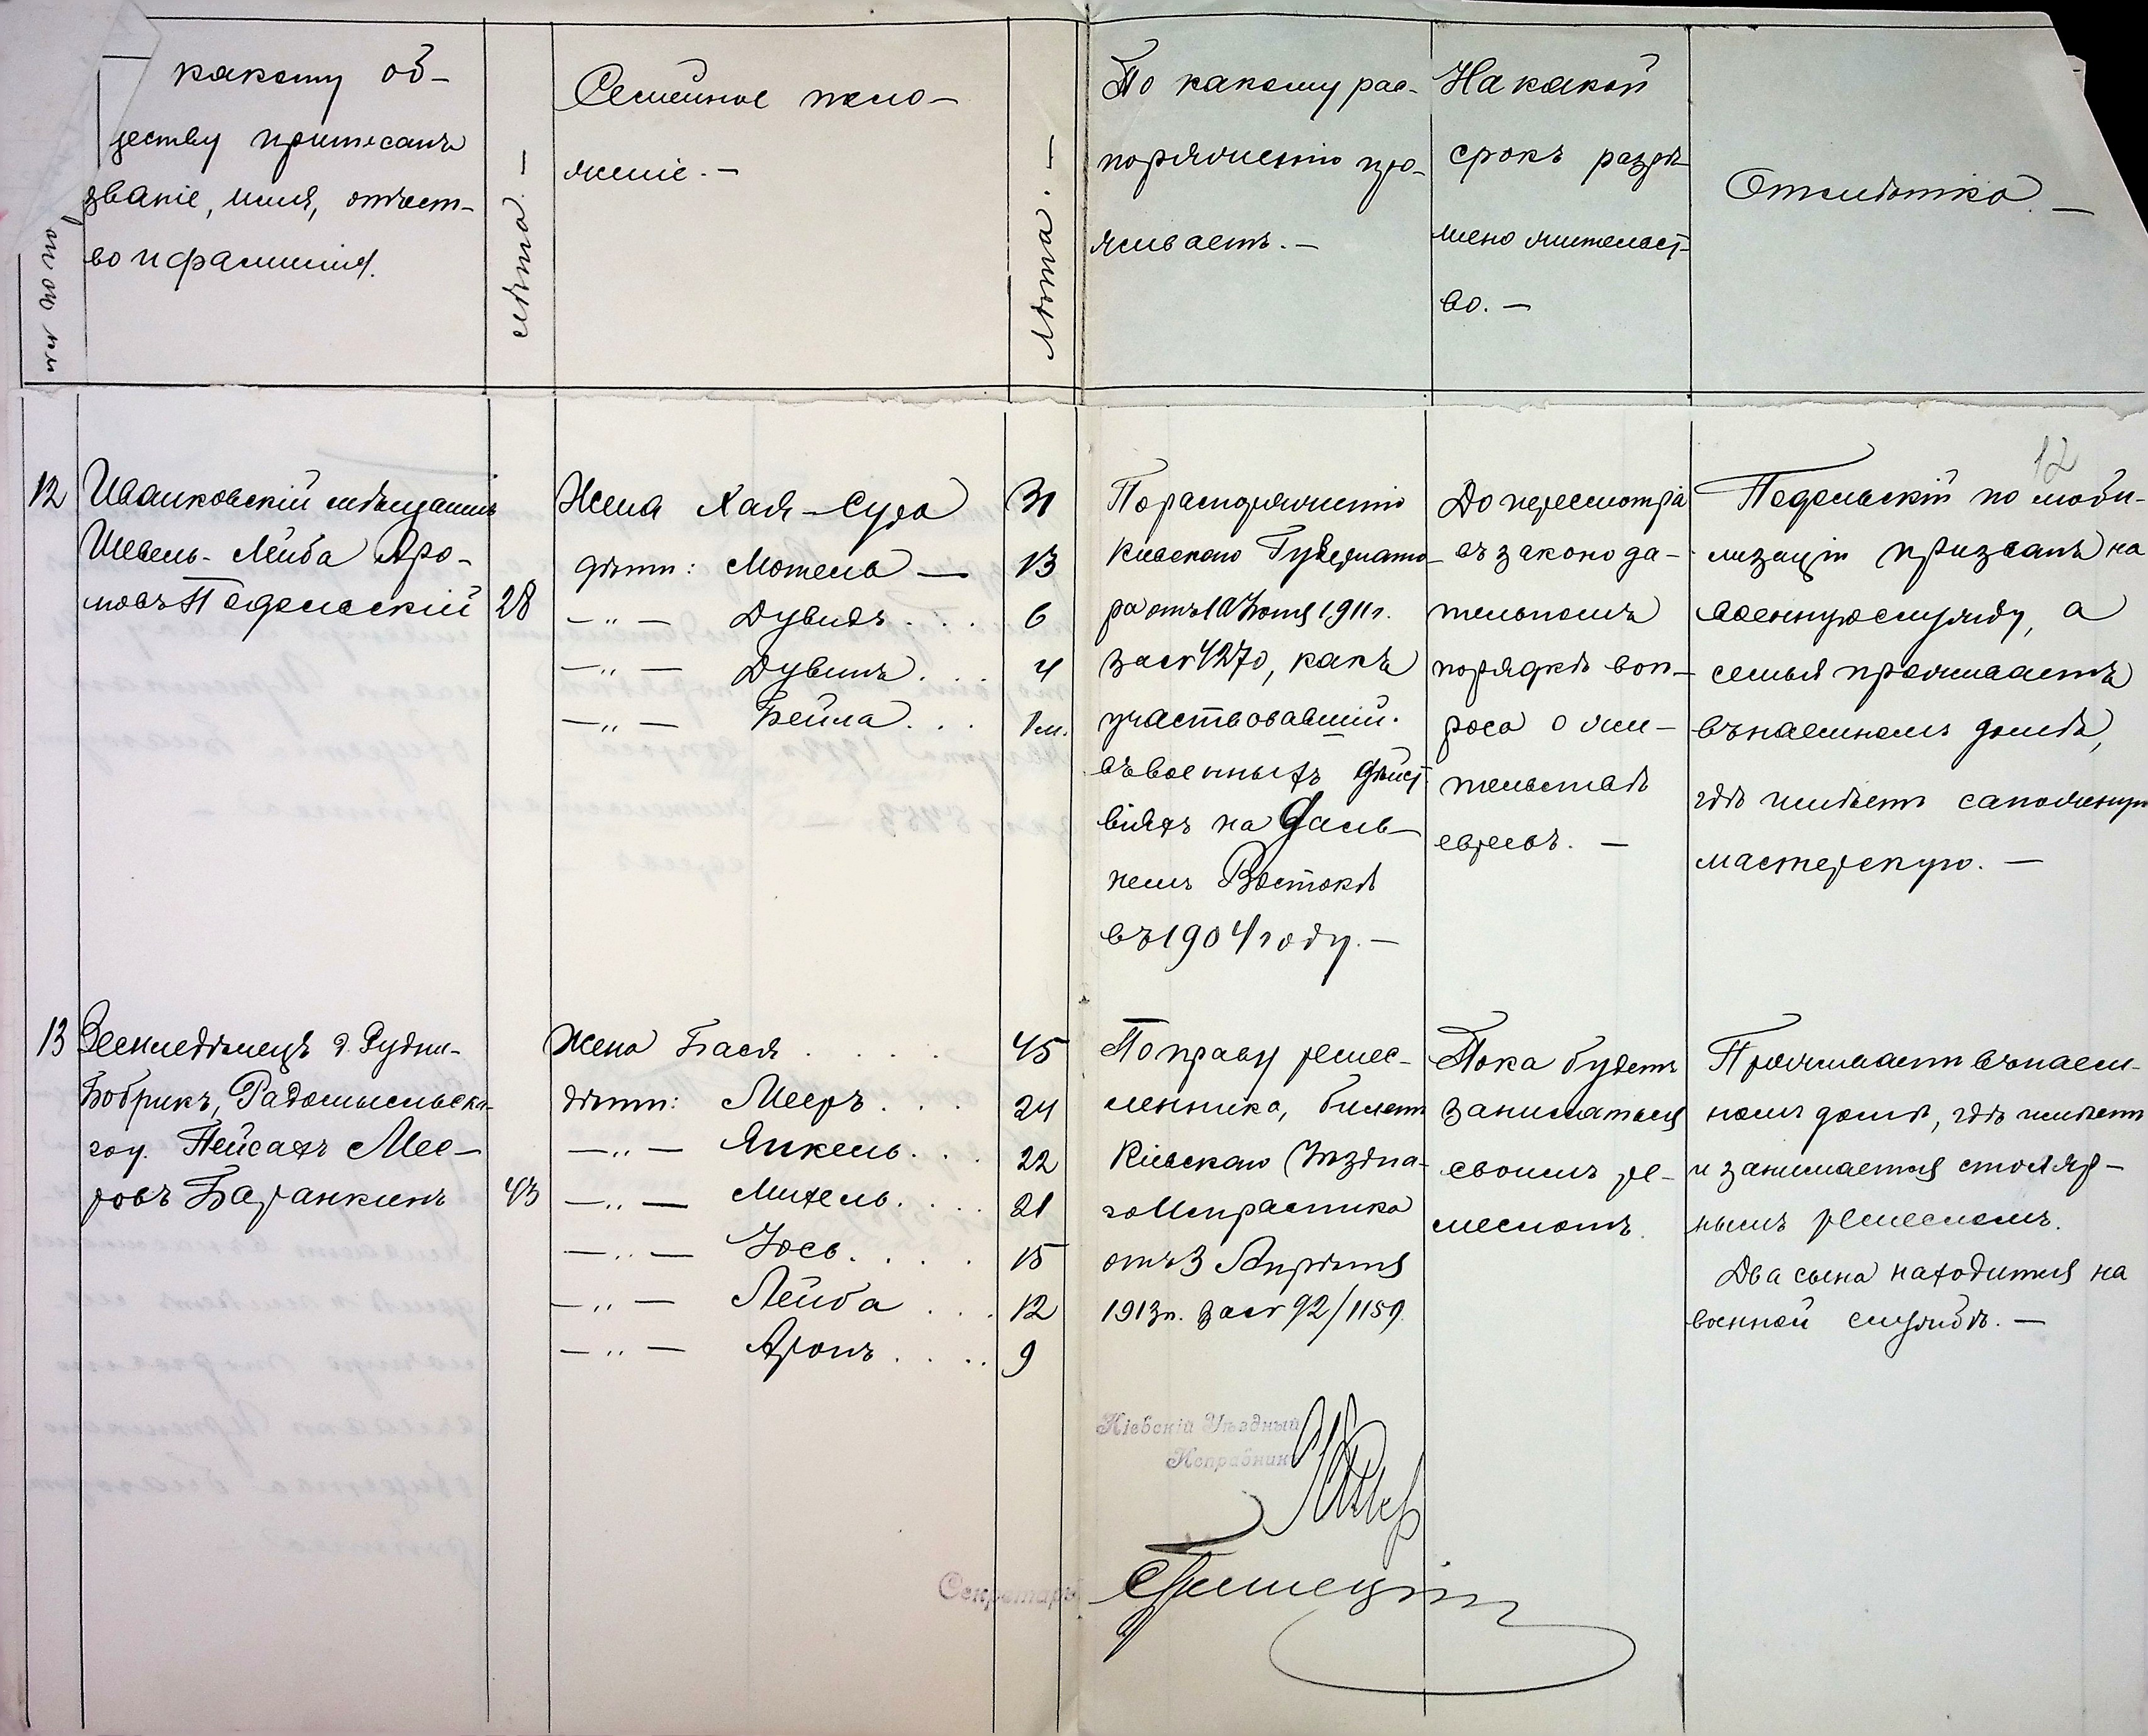 какому об-
ществу приписанъ
званіе, имя, отчест-
во и фамилія.
№№ по по
Лѣта. —
Семейное поло-
женіе. —
Лѣта. —
По какому рас-
поряженію про-
живаетъ. —
На какой
срокъ разрѣ-
шено жительст-
во. —
Отмѣтка. —
12
12
Иванковскій мѣщанинъ
Шевель-Лейба Аро-
новъ Подольскій
28
Жена Хая-Сура 31
дѣти: Мотель — 13
— " — Дувидъ . . . 6
— " — Дувинъ . . . 4
— " — Бейла . . . 1 м.
По распоряженію
Кіевскаго Губернато-
ра отъ 10 Іюня 1911 г.
за № 4270, какъ
участвовавшій
въ военныхъ дѣйст-
віяхъ на Даль-
немъ Востокѣ
въ 1904 году. —
До пересмотра
въ законода-
тельномъ
порядкѣ воп-
роса о жи-
тельствѣ
евреевъ. —
Подольскій по моби-
лизаціи призванъ на
военную службу, а
семья проживаетъ
въ наемномъ домѣ,
гдѣ имѣетъ сапожную
мастерскую. —
13
Земледѣлецъ д. Рудни-
Бобрикъ, Радомысльска-
го у. Пейсахъ Мее-
ровъ Баранкинъ
43
Жена Бася . . . . 45
дѣти: Мееръ . . . 24
— " — Янкель . . . 22
— " — Михель . . . . 21
— " — Іось . . . . 15
— " — Лейба . . . 12
— " — Аронъ . . . . 9
По праву ремес-
ленника, билетъ
Кіевскаго Уѣздна-
го Исправника
отъ 3 Апрѣля
1913 г. за № 92/1159.
Пока будетъ
заниматься
своимъ ре-
месломъ.
Проживаетъ въ наем-
номъ домѣ, гдѣ живетъ
и занимается столяр-
нымъ ремесломъ.
Два сына находится на
военной службѣ. —
Кіевскій Уѣздный
Исправникъ
Секретарь